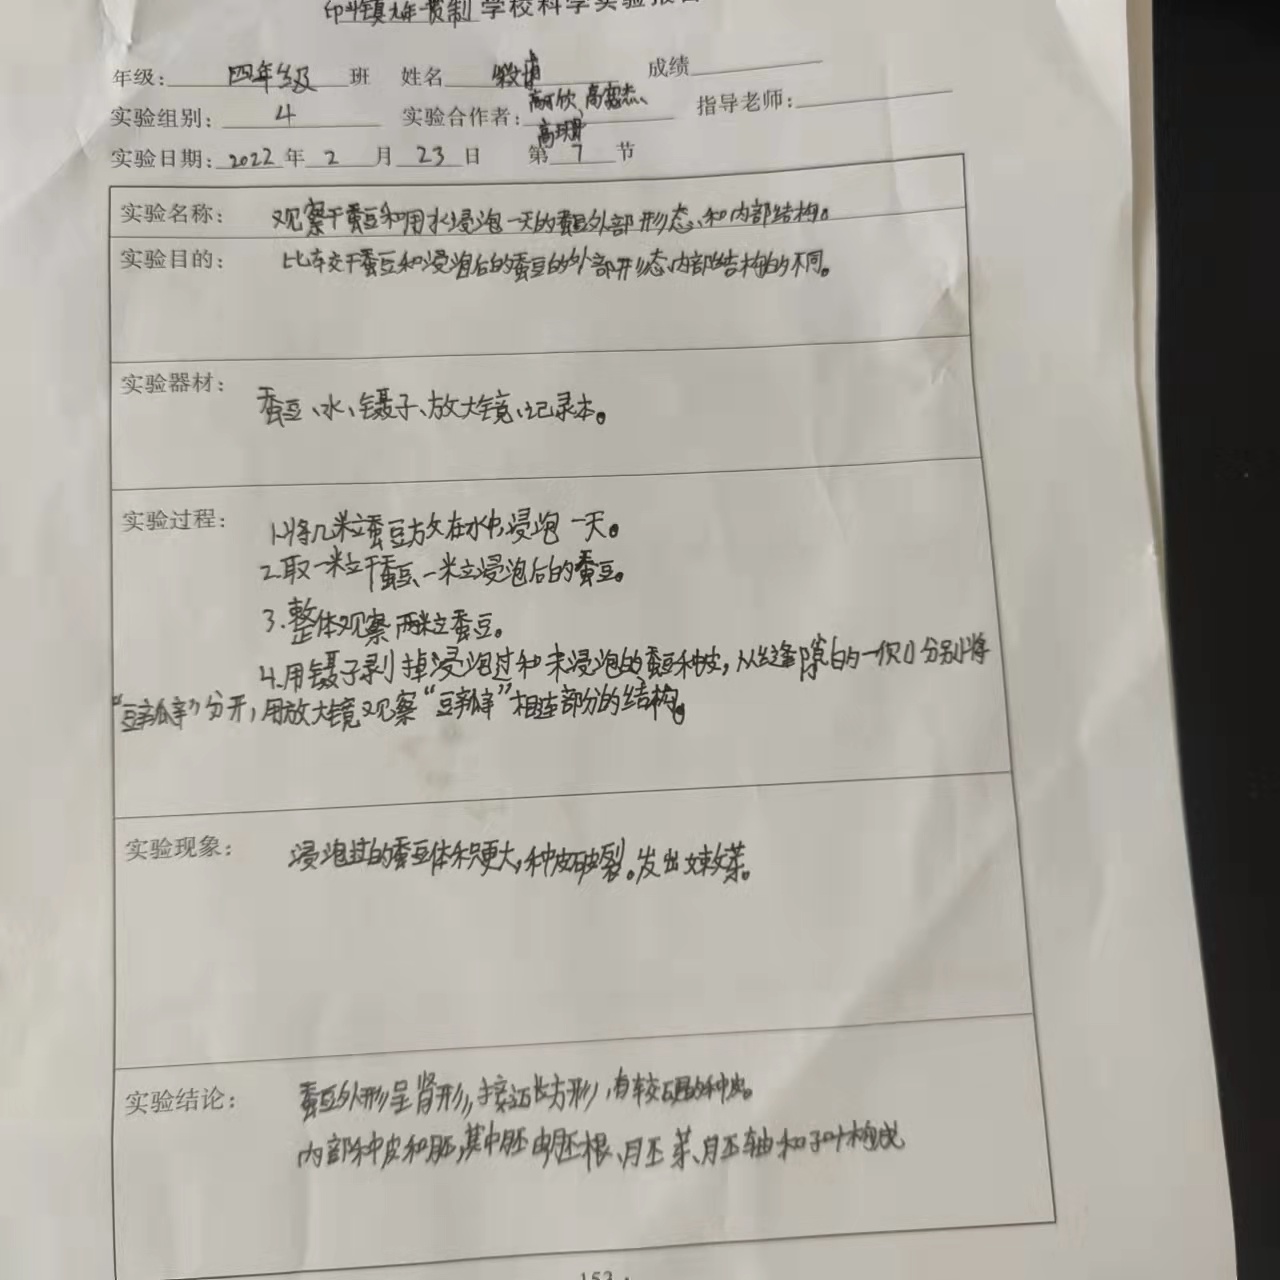 印斗镇九年一贯制学校科学实验报告
年级: 四年级 班 姓名 成绩
高可欣、高
实验组别: 4 实验合作者: 指导老师:
实验日期: 2022 年 2 月 23 日 第 7 节
实验名称: 观察干蚕豆和用水浸泡一天的蚕豆外部形态、和内部结构。
实验目的: 比较干蚕豆和浸泡后的蚕豆的外部形态内部结构的不同。
实验器材:
蚕豆、水、镊子、放大镜、记录本。
实验过程: 1.将几粒蚕豆放在水中浸泡一天。
2.取一粒干蚕豆、一粒浸泡后的蚕豆。
3.整体观察两粒蚕豆。
4.用镊子剥掉浸泡过和未浸泡的蚕豆种皮,从缝隙的一侧分别将
“豆瓣”分开,用放大镜观察“豆瓣”相连部分的结构。
实验现象: 浸泡过的蚕豆体积更大,种皮破裂。发出嫩芽。
实验结论: 蚕豆外形呈肾形,接近长方形,有较硬的种皮。
内部种皮和胚,其中胚由胚根、胚芽、胚轴和子叶构成
153 ·